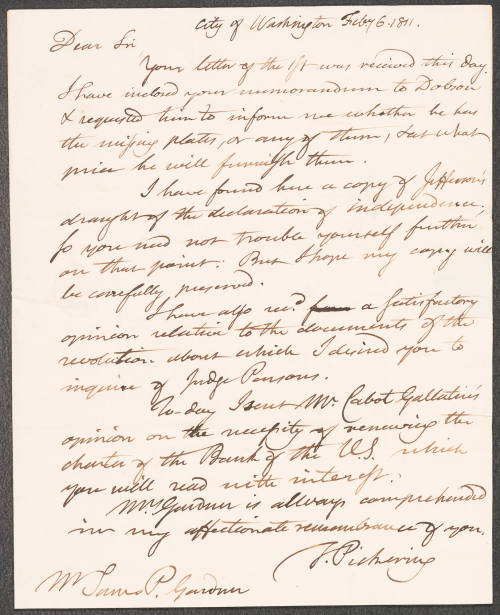 City of Washington Feby 6. 1811.
Dear Sir,
Your letter of the 1st was received this day.
I have inclosed your memorandum to Dobson
& requested him to inform me whether he has
the missing plates, or any of them, & at what
price he will furnish them.
I have found here a copy of Jefferson's
draught of the declaration of independence;
so you need not trouble yourself further
on that point. But I hope my copy will
be carefully preserved.
I have also recd. a satisfactory
opinion relative to the documents of the
revolution about which I desired you to
inquire of Judge Parsons.
To-day I sent Mr. Cabot Gallatin's
opinion on the necessity of renewing the
charter of the Bank of the U.S. which
you will read with interest.
Mrs. Gardner is allways comprehended
in my affectionate remembrance of you.
T. Pickering
Mr James P. Gardner